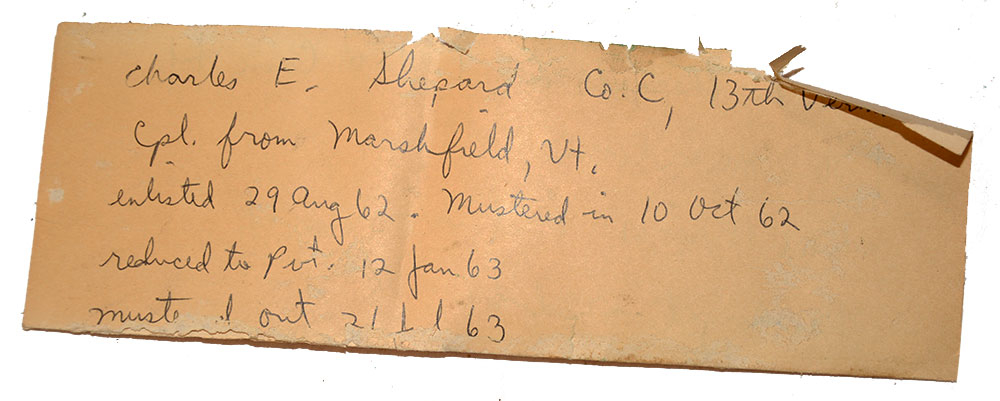 Charles E. Shepard Co. C, 13th
Cpl. from Marshfield, Vt.
enlisted 29 Aug 62. Mustered in 10 Oct 62
reduced to Pvt. 12 Jan 63
out 21 63